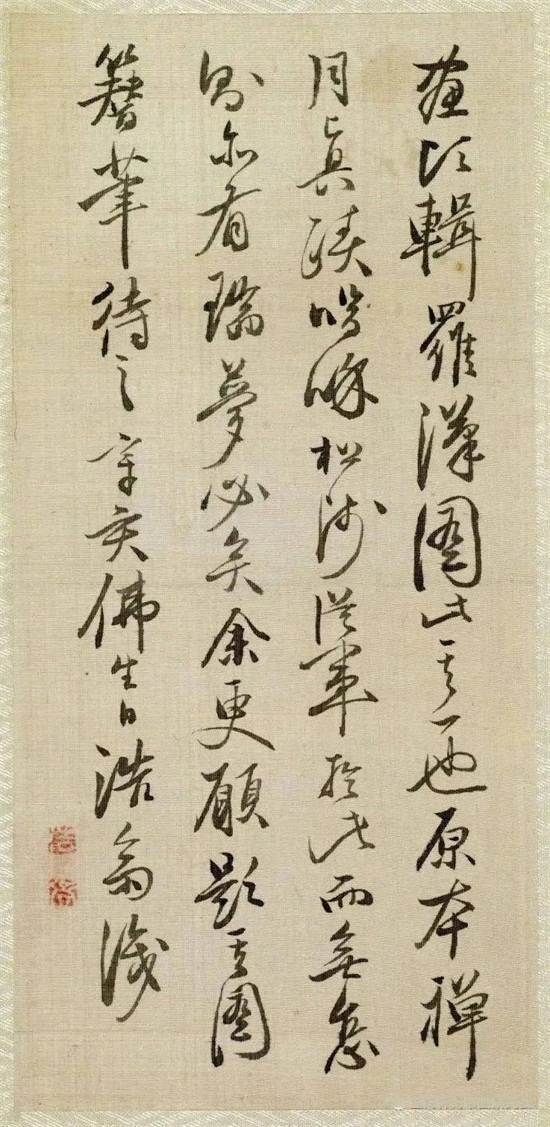 輯羅漢圖此其一也原本禪
月真蹟嗚呼松從事於此而無怠
則亦有瑞夢必矣余更願題其圖
簪筆待之辛亥佛生日浩翁識